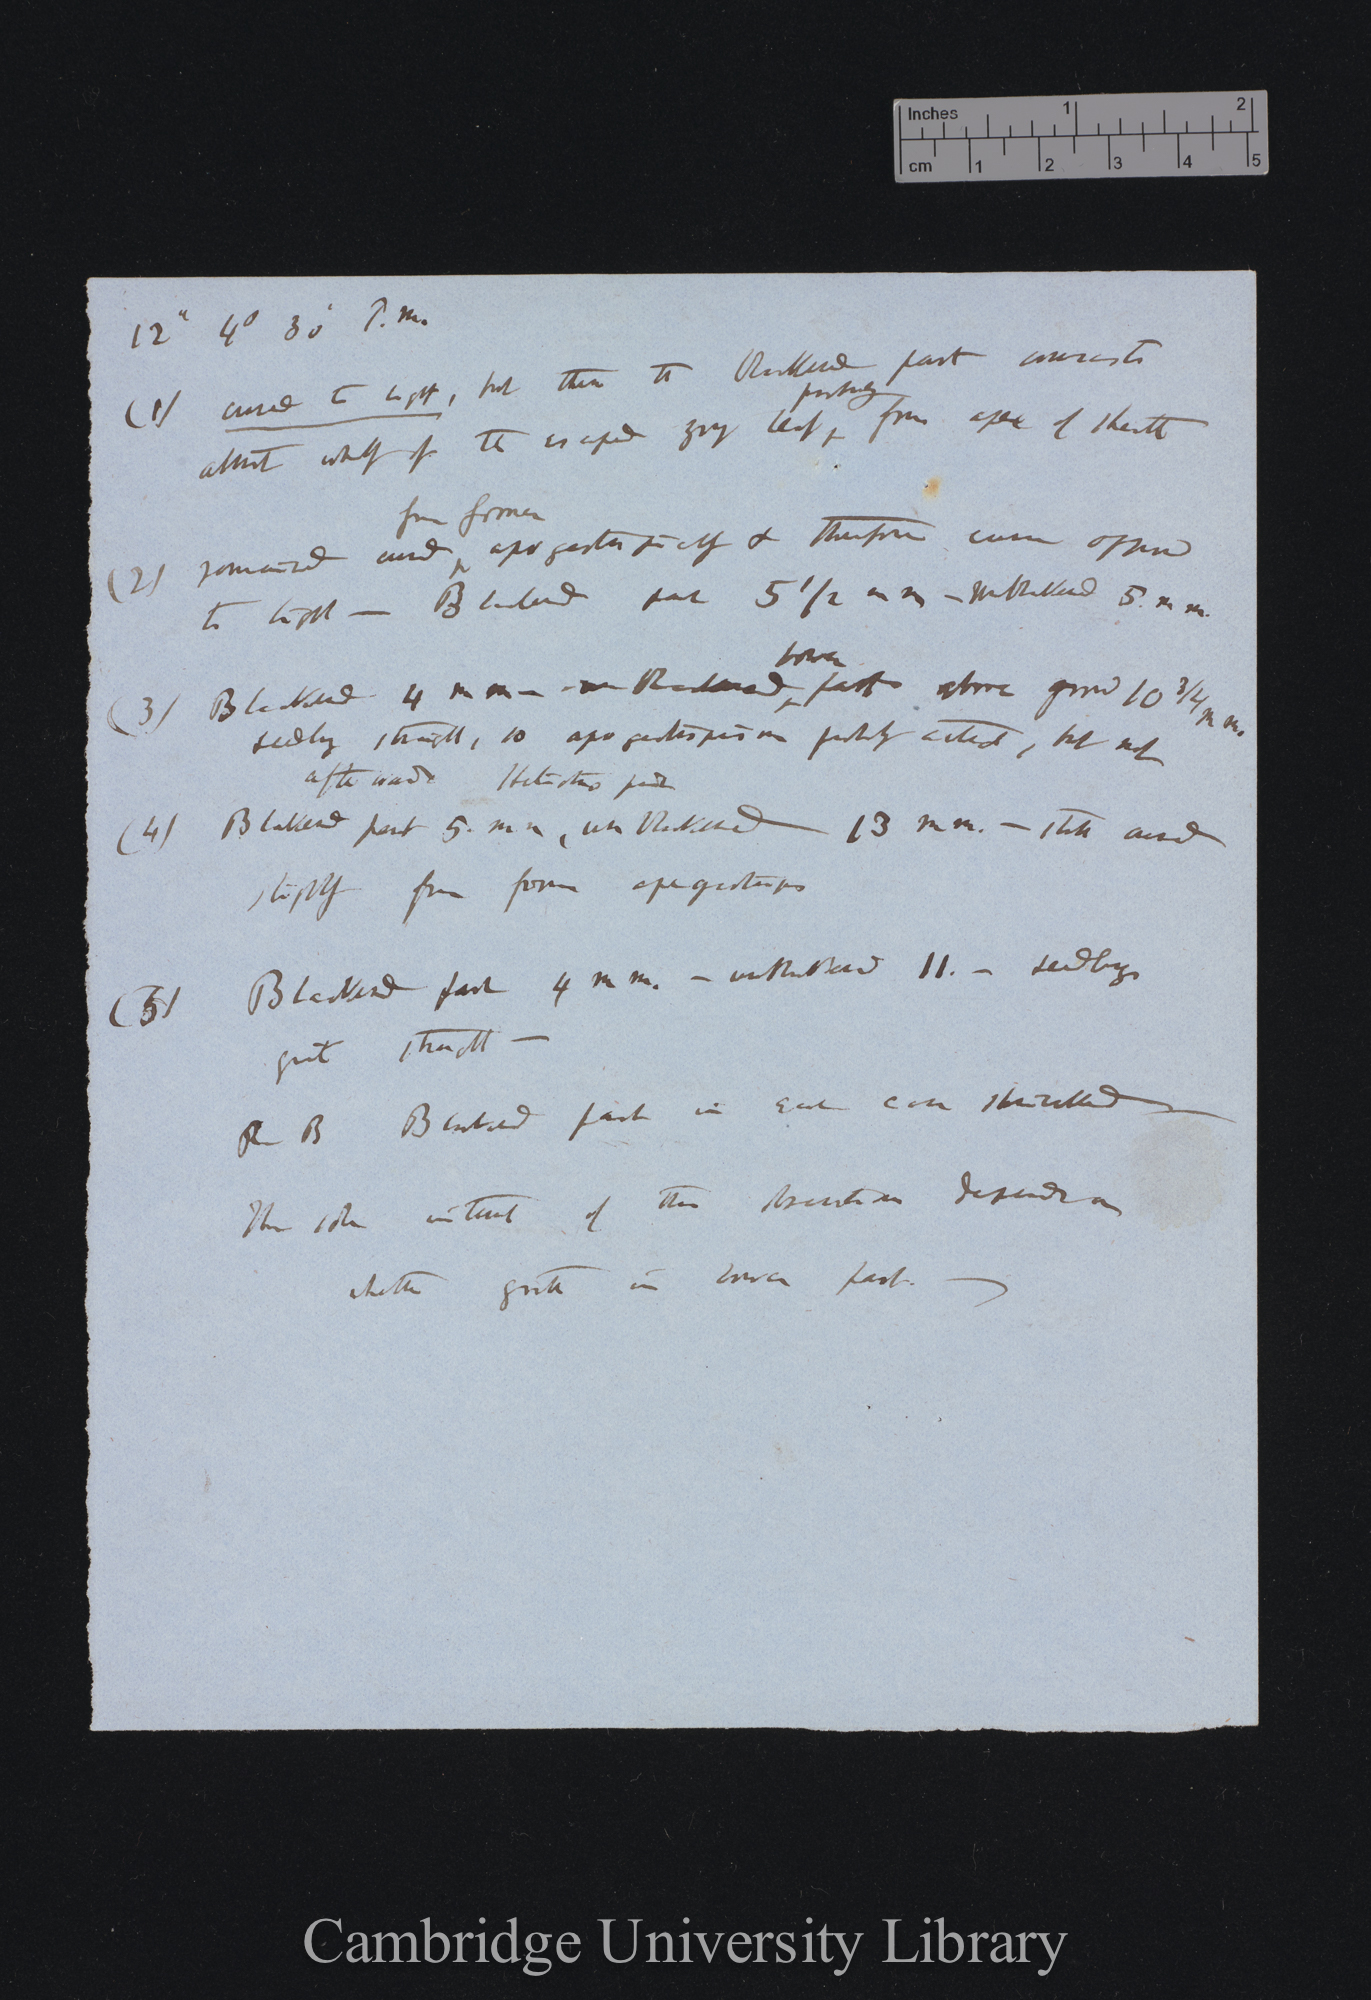 Inches 1 2
cm 1 2 3 4 5
12" 4° 30' P.m.
(1) curved to light, but then the blackened part consists
partly
almost wholly of the escaped grey leaf, from apex of sheath
from former
(2) remained curved, apogeotropically & therefore curve opposed
to light — Blackened part 5 1/2 mm — unblackened 5. mm.
lower
(3) Blackened 4 mm — unblackened, part above ground 10 3/4 mm.
seedling straight, so apogeotropism partly acted, but not
afterwards Heliotropism
(4) Blackened part 5. mm, unblackened — 13 mm. — still curved
slightly from former apogeotropism
(5) Blackened part 4 mm. — unblackened 11. — seedlings
quite straight —
N B Blackened part in each case shrivelled —
The sole interest of these observations depends on
whether growth in lower part. —
Cambridge University Library